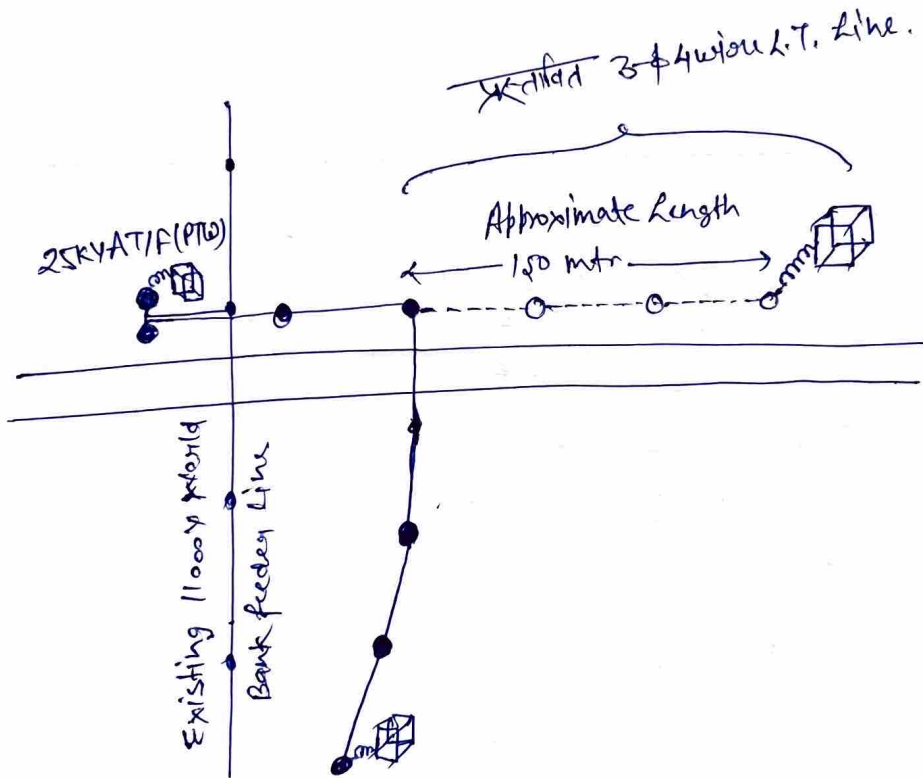 प्रस्तावित 3-ϕ 4 wire L.T. Line.
Approximate Length
150 mtr.
25KVA T/F (PTW)
Existing 11000 V World
Bank feeder Line